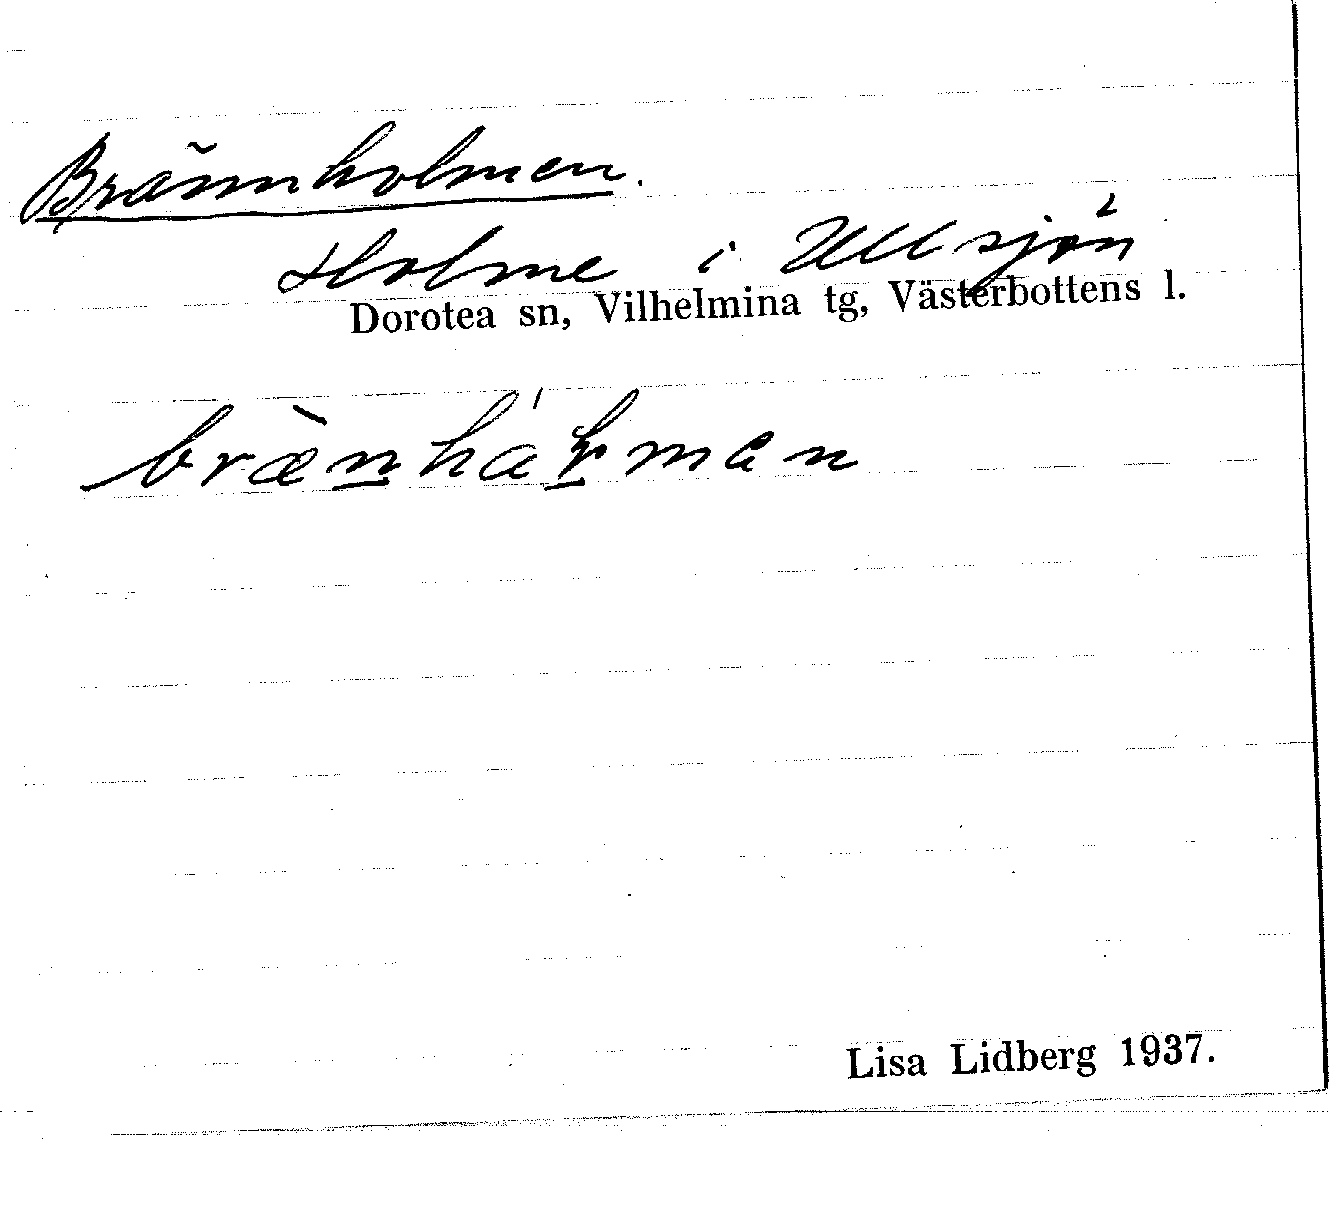 Brännholmen.
Holme i Ullsjön
Dorotea sn, Vilhelmina tg, Västerbottens l.
Lisa Lidberg 1937.